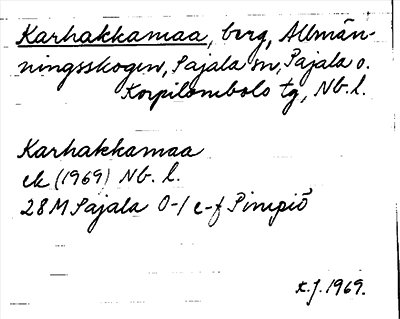 Karhakkamaa, berg, Allmän-
ningsskogen, Pajala sn, Pajala o.
Korpilombolo tg, Nb. l.
Karhakkamaa
ek (1969) Nb. l.
28 M Pajala 0-1 e-f Pimpiö
K.J. 1969.